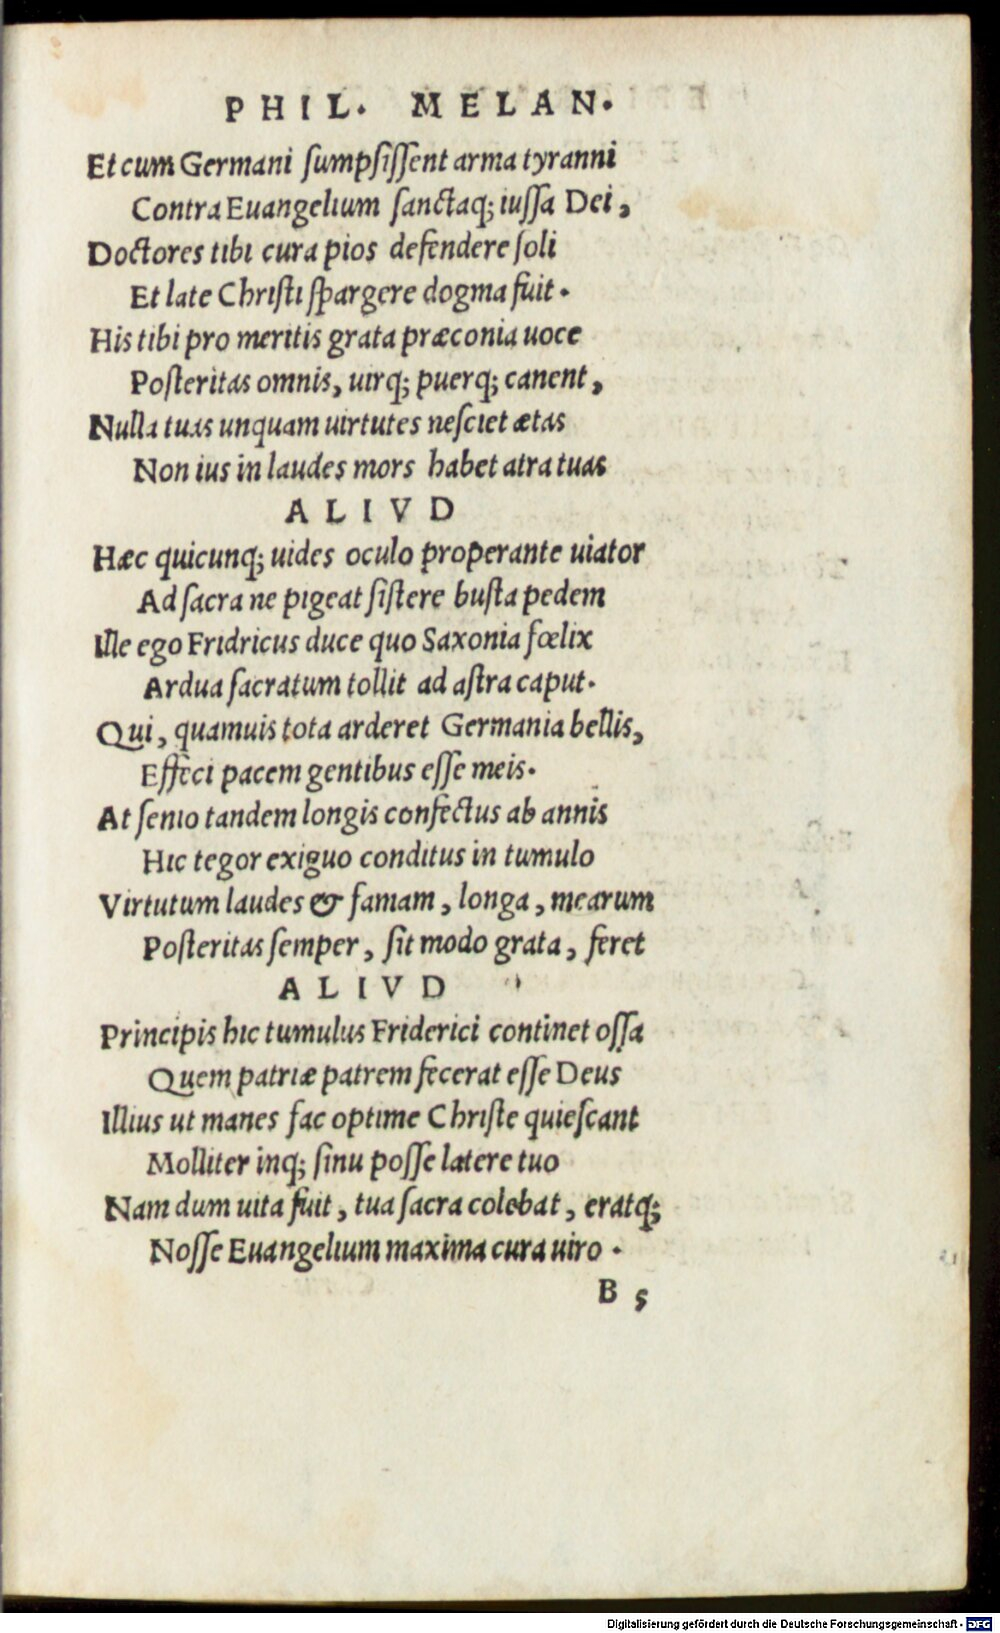 PHIL. MELAN.
Et cum Germani ſumpſiſſent arma tyranni
Contra Euangelium ſanctaq; iuſſa Dei,
Doctores tibi cura pios defendere ſoli
Et late Chriſti ſpargere dogma fuit.
His tibi pro meritis grata præconia uoce
Poſteritas omnis, uirq; puerq; canent,
Nulla tuas unquam uirtutes neſciet ætas
Non ius in laudes mors habet atra tuas
ALIVD
Hæc quicunq; uides oculo properante uiator
Ad ſacra ne pigeat ſiſtere buſta pedem
Ille ego Fridricus duce quo Saxonia fœlix
Ardua ſacratum tollit ad aſtra caput.
Qui, quamuis tota arderet Germania bellis,
Effeci pacem gentibus eſſe meis.
At ſenio tandem longis confectus ab annis
Hic tegor exiguo conditus in tumulo
Virtutum laudes & famam, longa, mearum
Poſteritas ſemper, ſit modo grata, feret
ALIVD
Principis hic tumulus Friderici continet oſſa
Quem patriæ patrem fecerat eſſe Deus
Illius ut manes fac optime Chriſte quieſcant
Molliter inq; ſinu poſſe latere tuo
Nam dum uita fuit, tua ſacra colebat, eratq;
Noſſe Euangelium maxima cura uiro.
B 5
Digitalisierung gefördert durch die Deutsche Forschungsgemeinschaft - DFG